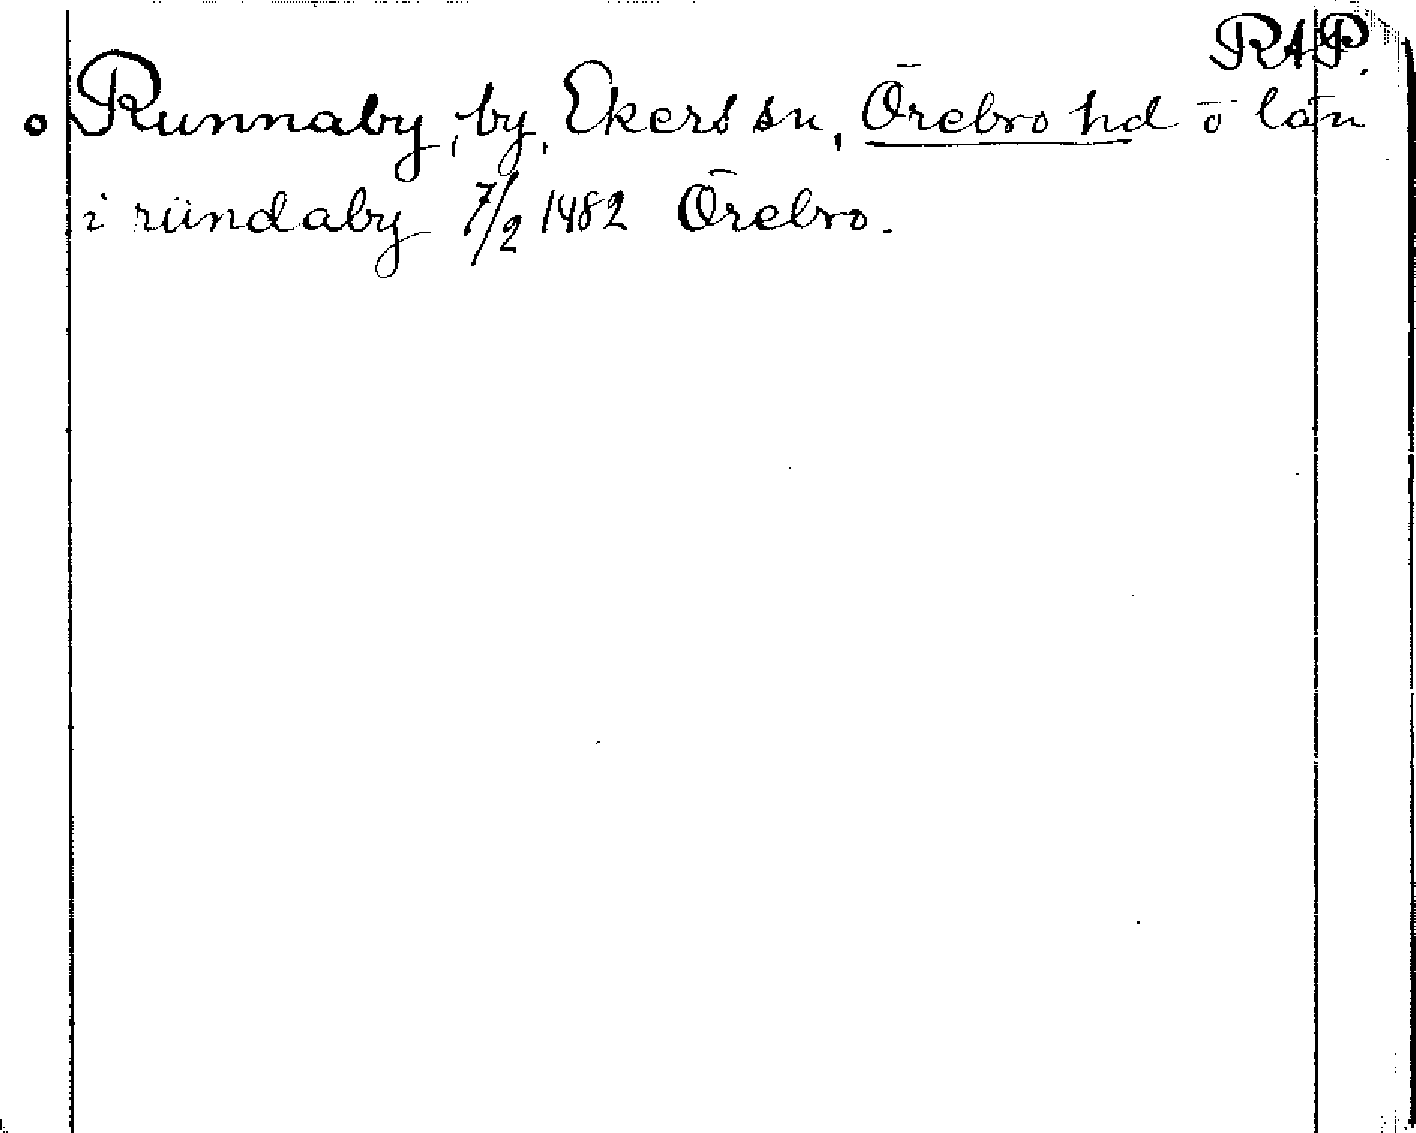 RAP.
o Runnaby, by, Ekers sn, Örebro hd o län
i ründaby 7/2 1482 Örebro.